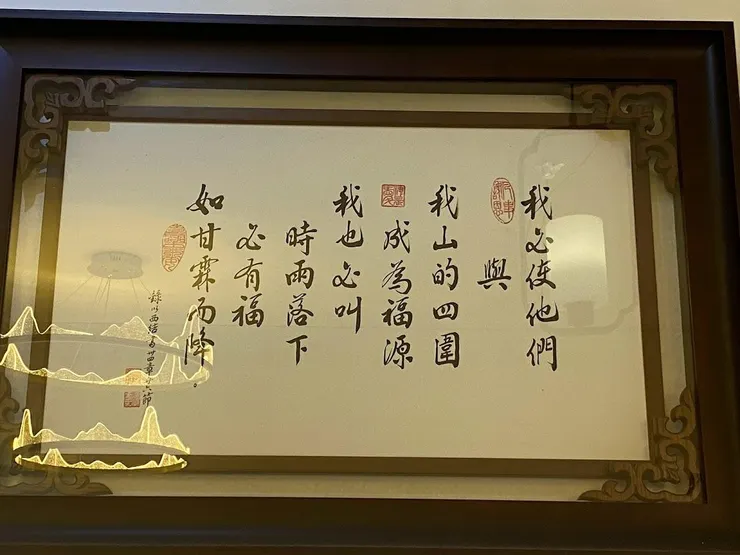 我必使他們
與
我山的四圍
成為福源
我也必叫
時雨落下
必有福
如甘霖而降。
錄以西結書卅四章廿六節